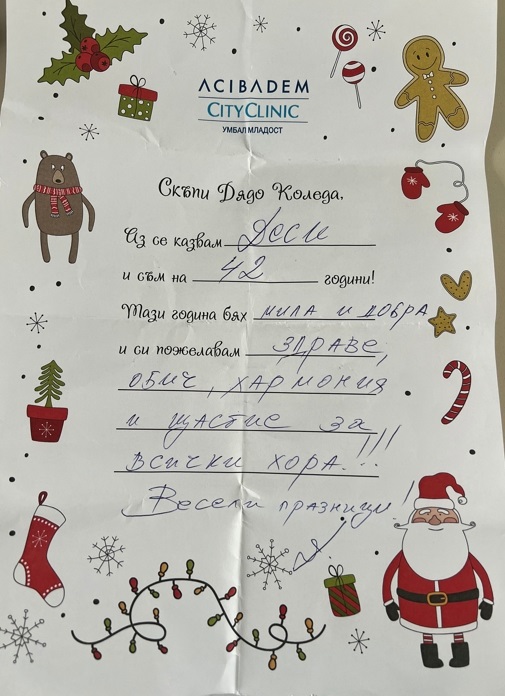 ACIBADEM
CITYCLINIC
УМБАЛ МЛАДОСТ
Скъпи Дядо Коледа,
Аз се казвам Деси
и съм на 42 години!
Тази година бях мила и добра
и си пожелавам здраве,
обич, хармония
и щастие за
всички хора...!!!
Весели празници!